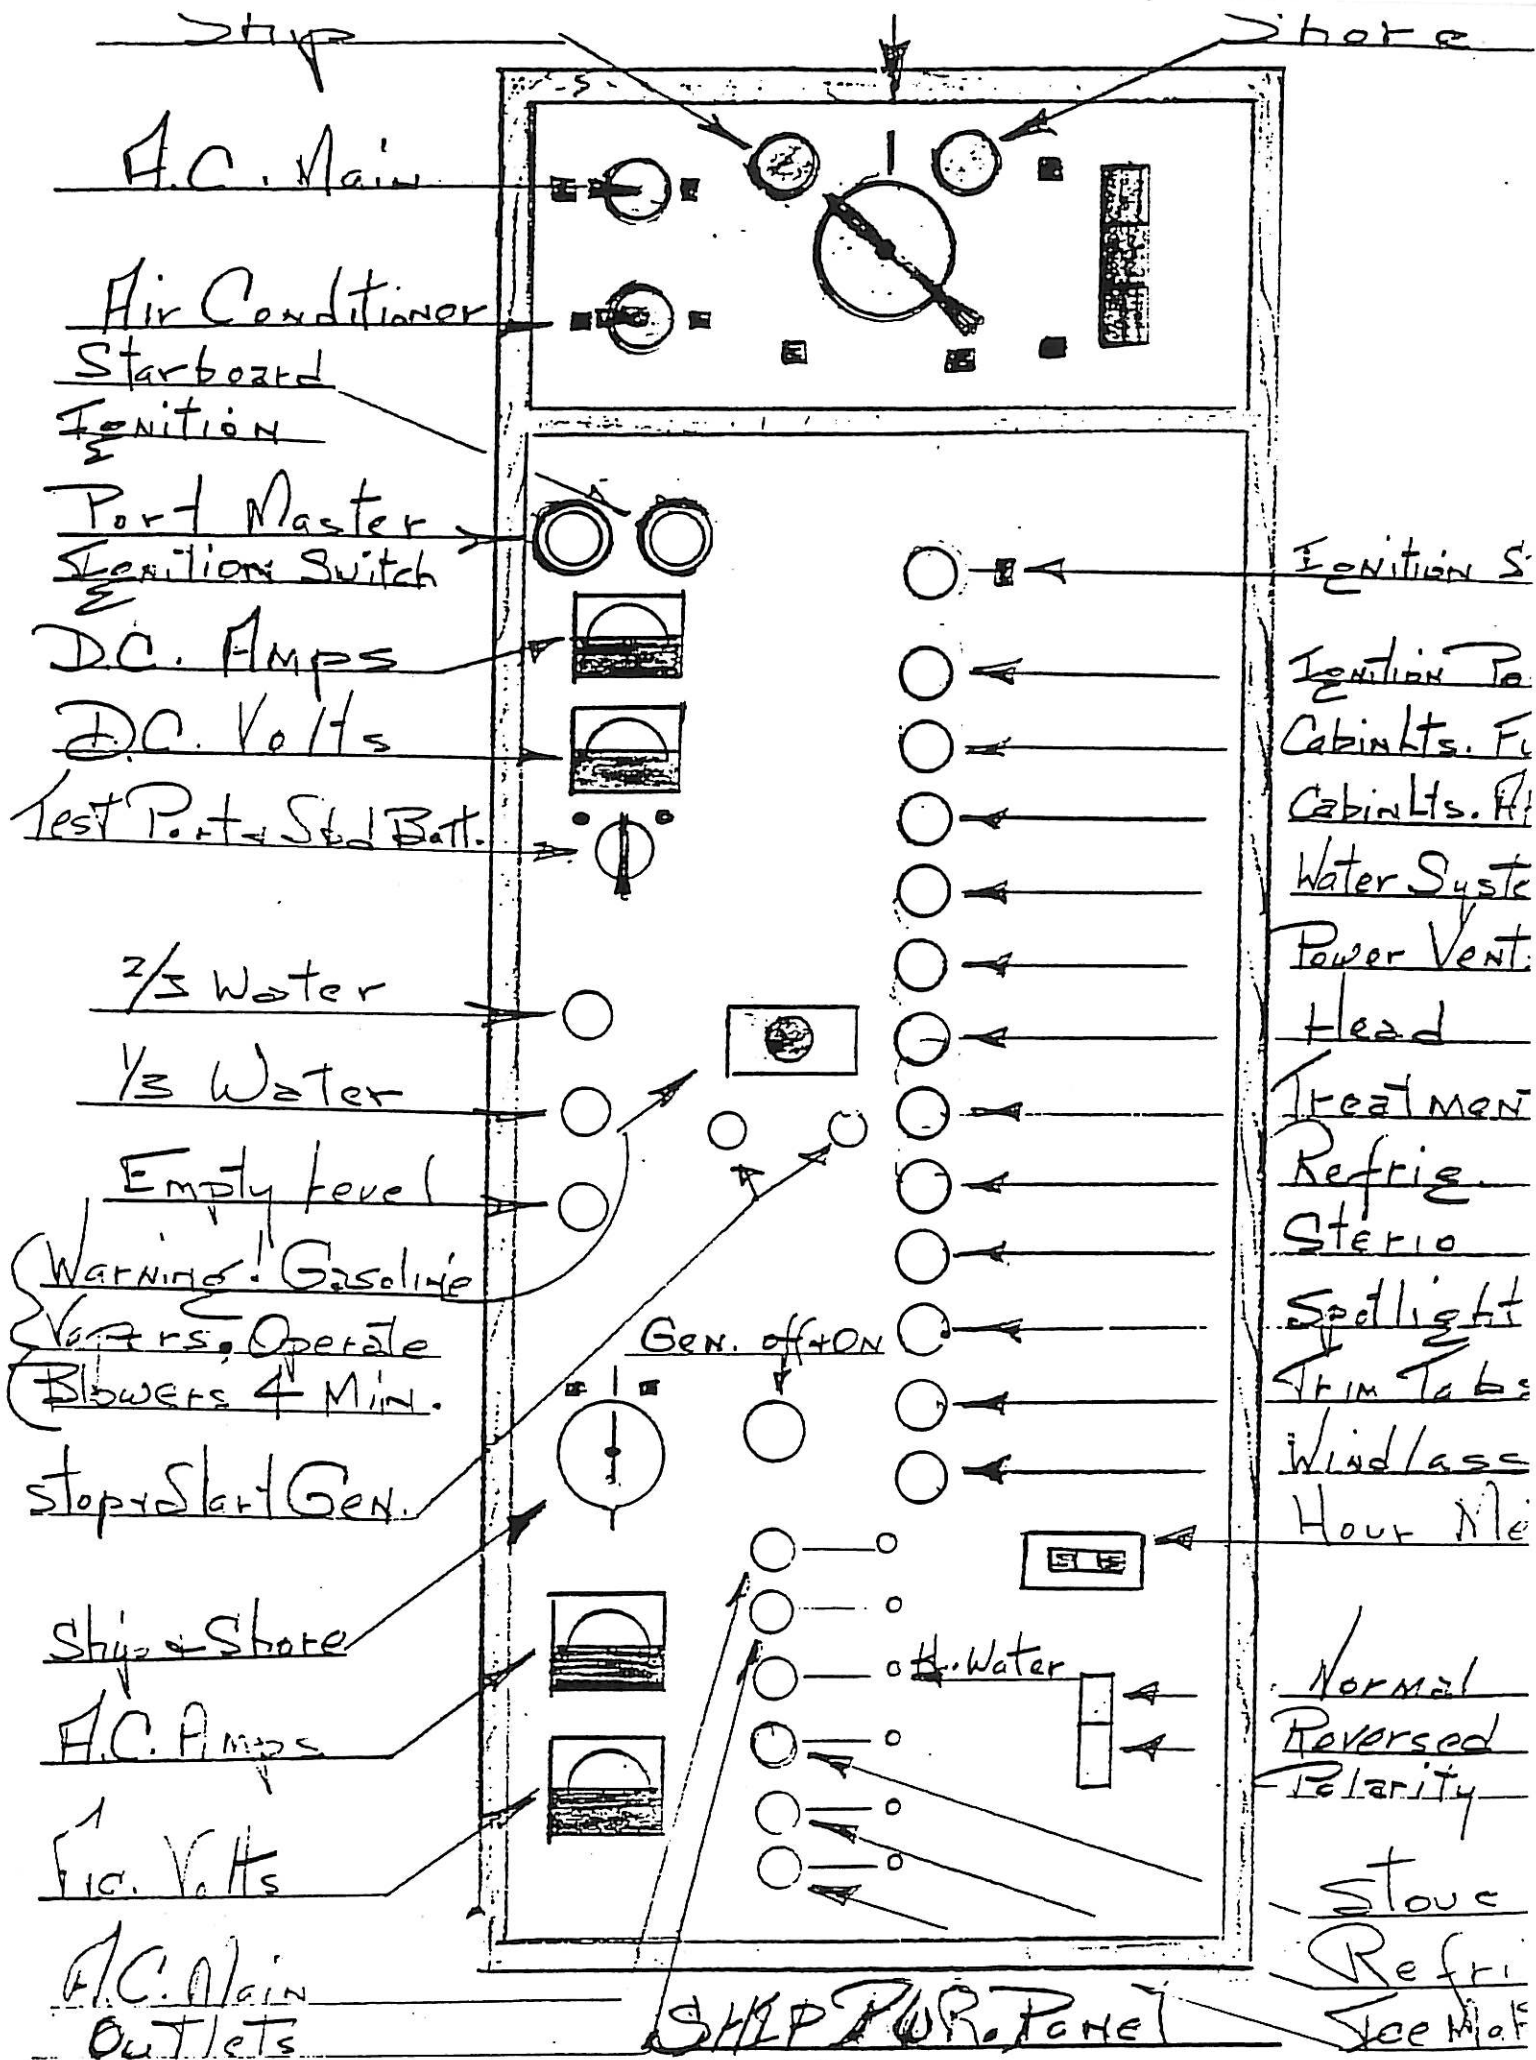 Ship
Shore
A.C. Main
Air Conditioner
Starboard
Ignition
Port Master
Ignition Switch
D.C. Amps
D.C. Volts
Test Port & Stbd Batt.
2/3 Water
1/3 Water
Empty Level
Warning! Gasoline
Vapers. Operate
Blowers 4 Min.
Stop & Start Gen.
Ship & Shore
A.C. Amps
A.C. Volts
A.C. Main
Outlets
Gen. off & ON
H. Water
Ignition S
Ignition Po
Cabin Lts. Fu
Cabin Lts. Af
Water Syste
Power Vent.
Head
Treatmen
Refrig.
Sterio
Spotlight
Trim Tabs
Windlass
Hour Me
Normal
Reversed
Polarity
Stove
Refri
Ice Mak
SHIP PWR. Panel